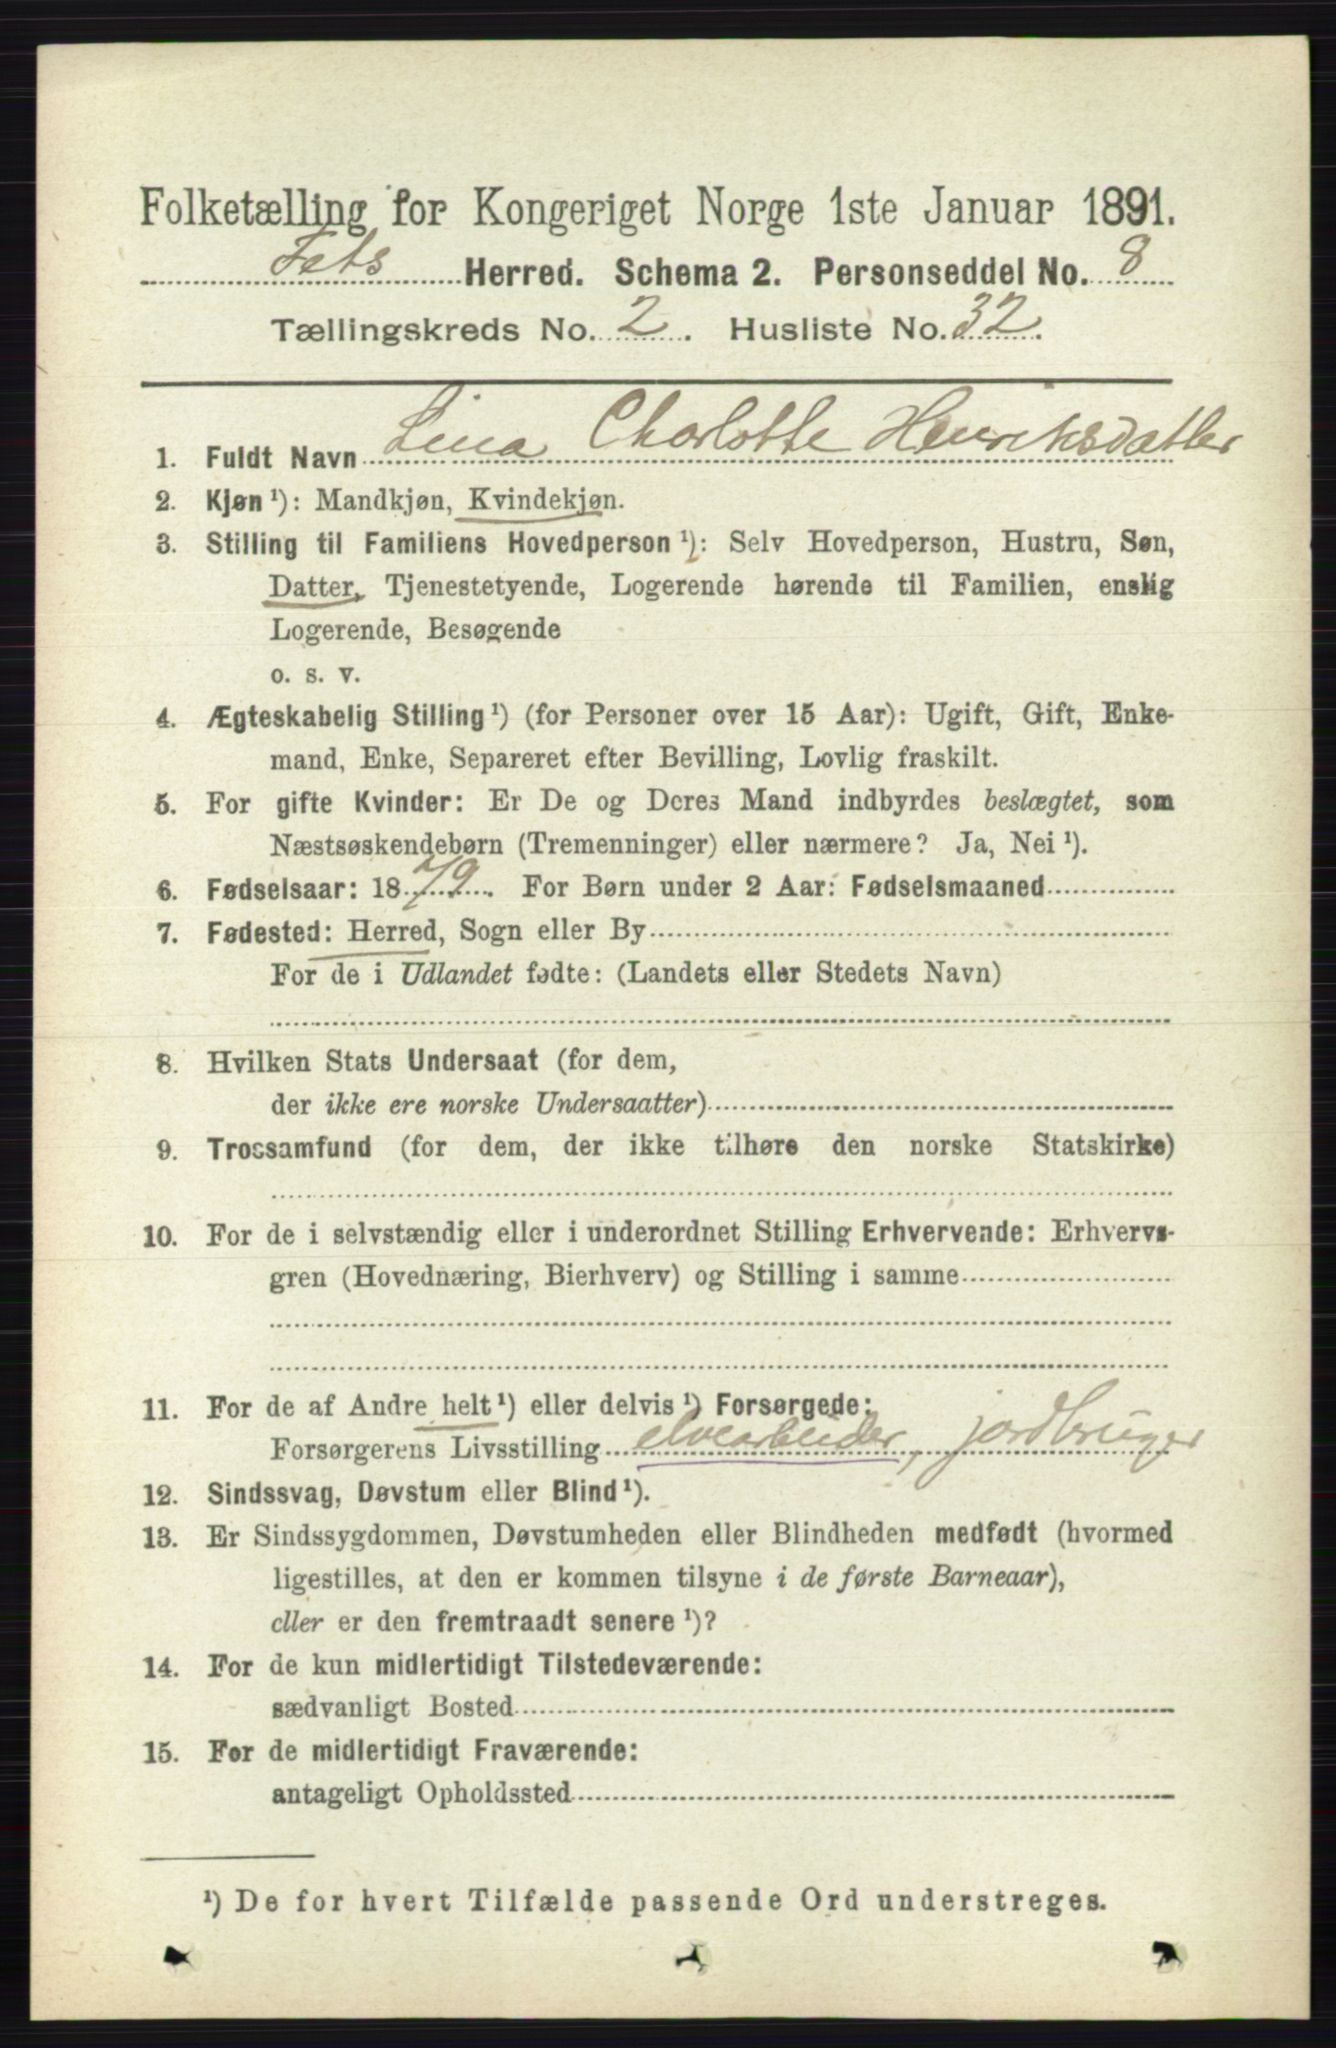 Folketælling for Kongeriget Norge 1ste Januar 1891.
Fets Herred. Schema 2. Personseddel No. 8
Tællingskreds No. 2. Husliste No. 32.
1. Fuldt Navn Lina Charlotte Henriksdatter
2. Kjøn¹): Mandkjøn, Kvindekjøn.
3. Stilling til Familiens Hovedperson¹): Selv Hovedperson, Hustru, Søn,
Datter, Tjenestetyende, Logerende hørende til Familien, enslig
Logerende, Besøgende
o. s. v.
4. Ægteskabelig Stilling¹) (for Personer over 15 Aar): Ugift, Gift, Enke-
mand, Enke, Separeret efter Bevilling, Lovlig fraskilt.
5. For gifte Kvinder: Er De og Deres Mand indbyrdes beslægtet, som
Næstsøskendebørn (Tremenninger) eller nærmere? Ja, Nei¹).
6. Fødselsaar: 1879. For Børn under 2 Aar: Fødselsmaaned
7. Fødested: Herred, Sogn eller By
For de i Udlandet fødte: (Landets eller Stedets Navn)
8. Hvilken Stats Undersaat (for dem,
der ikke ere norske Undersaatter)
9. Trossamfund (for dem, der ikke tilhøre den norske Statskirke)
10. For de i selvstændig eller i underordnet Stilling Erhvervende: Erhvervs-
gren (Hovednæring, Bierhverv) og Stilling i samme
11. For de af Andre helt¹) eller delvis¹) Forsørgede:
Forsørgerens Livsstilling elvearbeider, jordbruger
12. Sindssvag, Døvstum eller Blind¹).
13. Er Sindssygdommen, Døvstumheden eller Blindheden medfødt (hvormed
ligestilles, at den er kommen tilsyne i de første Barneaar),
eller er den fremtraadt senere¹)?
14. For de kun midlertidigt Tilstedeværende:
sædvanligt Bosted
15. For de midlertidigt Fraværende:
antageligt Opholdssted
¹) De for hvert Tilfælde passende Ord understreges.